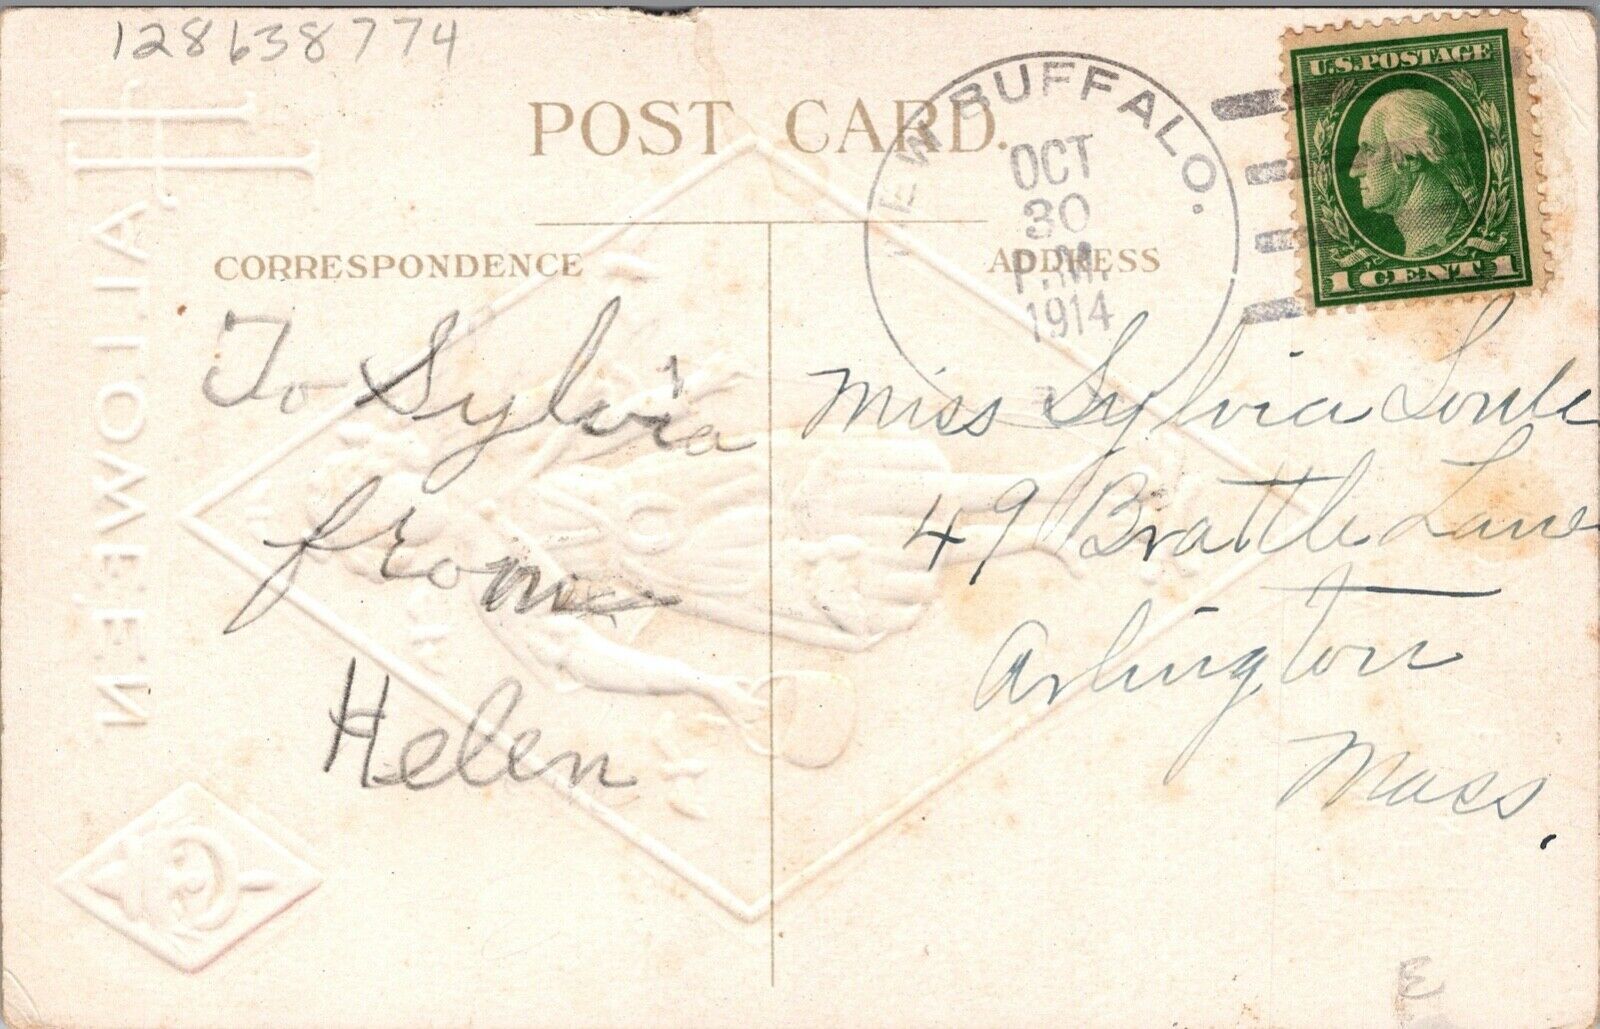 128638774
U.S. POSTAGE
1 CENT 1
POST CARD.
NEW BUFFALO.
OCT
30
P.M.
1914
CORRESPONDENCE
ADDRESS
To Sylvia
from
Helen
Miss Sylvia
49 Brattle Lane
Arlington
Mass.
HALLOWE'EN
G
E